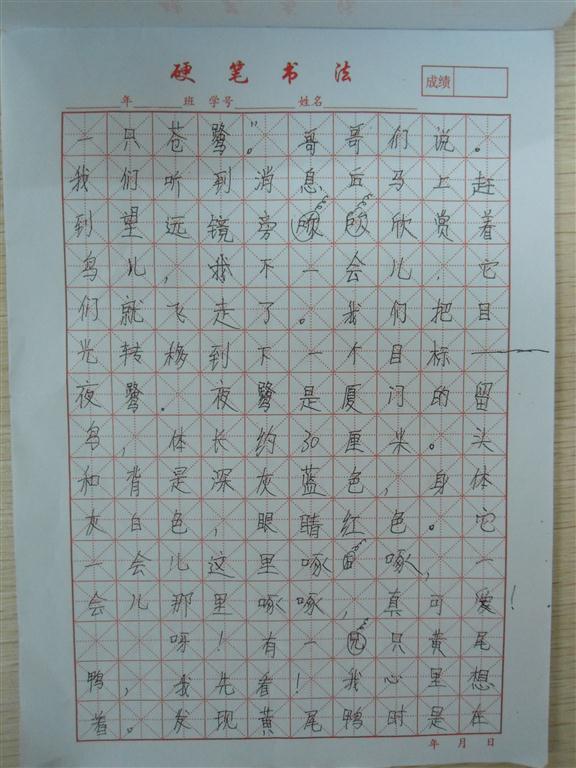 硬笔书法
成绩
年 班 学号 姓名
一只苍鹭。”哥哥们说。
我们听到消息后马上赶
到望远镜旁欣赏着
鸟儿,我不一会儿,它
们就飞走了。我们把目
光转移到下一个目标——
夜鹭。夜鹭是厦门的留
鸟,体长约30厘米。头
和背是深灰蓝色,身体
灰白色,眼睛红色。它
一会儿这里啄啄,一
会儿那里啄啄,真可爱!
呀!有一只黄尾
鸭,我先看!我心里想
着。发现黄尾鸭时是在
年 月 日